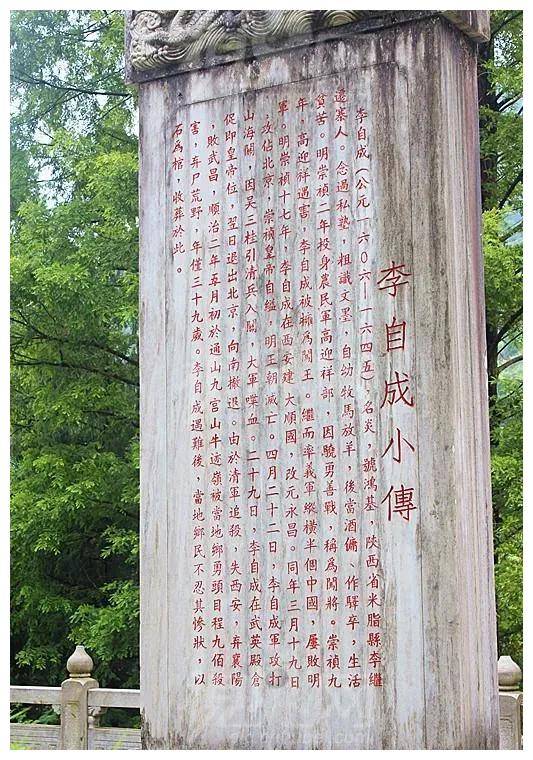 李自成小傳
李自成(公元一六〇六—一六四五),名炎,號鴻基,陝西省米脂縣李繼
遷寨人。念過私塾,粗識文墨,自幼牧馬放羊,後當酒傭、作驛卒,生活
貧苦。明崇禎二年投身農民軍高迎祥部,因驍勇善戰,稱爲闖將。崇禎九
年,高迎祥遇害,李自成被擁爲闖王。繼而率義軍縱橫半個中國,屢敗明
軍。明崇禎十七年,李自成在西安建大順國,改元永昌。同年三月十九日
,攻佔北京,崇禎皇帝自縊,明王朝滅亡。四月二十二日,李自成軍攻打
山海關,因吳三桂引清兵入關,大軍喋血。二十九日,李自成在武英殿倉
促即皇帝位,翌日退出北京,向南撤退。由於清軍追殺,失西安,弃襄陽
,敗武昌,順治二年五月初於通山九宮山牛迹嶺被當地鄉勇頭目程九佰殺
害,弃尸荒野,年僅三十九歲。李自成遇難後,當地鄉民不忍其慘狀,以
石爲棺,收葬於此。